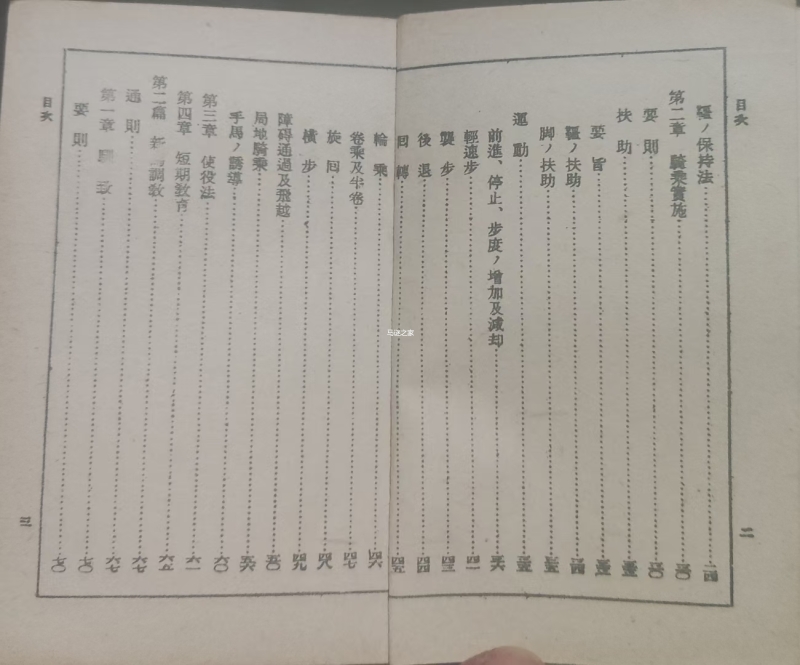 目次
韁ノ保持法 二四
第二章 騎乘實施 三〇
要則 三〇
扶助 三三
要旨 三三
韁ノ扶助 三四
脚ノ扶助 三五
運動 三五
前進、停止、步度ノ增加及減却 三六
輕速步 四一
襲步 四三
後退 四四
回轉 四五
二
輪乘 四六
卷乘及半卷 四七
旋回 四八
橫步 四九
障碍通過及飛越 五〇
局地騎乘 五六
手馬ノ誘導 六〇
第三章 使役法 六一
第四章 短期敎育 六五
第二篇 新馬調敎 六七
通則 六七
第一章 馴致 七〇
要則 七〇
目次
三